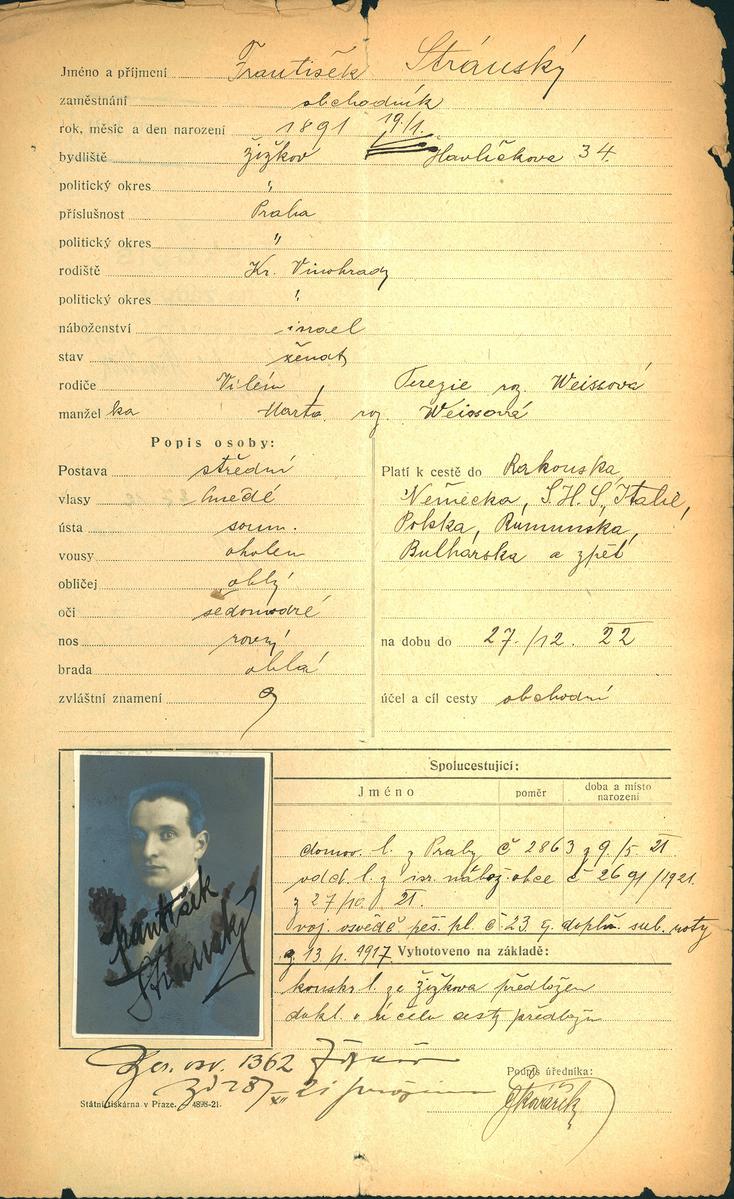 Jméno a příjmení František Stránský
zaměstnání obchodník
rok, měsíc a den narození 1891 19/1.
bydliště Žižkov Havlíčkova 34.
politický okres "
příslušnost Praha
politický okres "
rodiště Kr. Vinohrady
politický okres "
náboženství israel
stav ženat
rodiče Vilém, Terezie roz. Weissová
manžel ka Marta roz. Weissová
Popis osoby:
Postava střední
vlasy hnědé
ústa soum.
vousy oholen
obličej oblý
oči šedomodré
nos rovný
brada oblá
zvláštní znamení
Platí k cestě do Rakouska,
Německa, S.H.S., Italie,
Polska, Rumunska,
Bulharska a zpět
na dobu do 27./12. 22
účel a cíl cesty obchodní
Spolucestující:
Jméno poměr doba a místo narození
domov. l. z Prahy č 2863 z 9./5. 21
odd. l. z isr. nábož. obce č 2691/1921
z 27/10 21.
voj. osvědč pěš. pl. č 23. doplň. roty
z 13/1. 1917. Vyhotoveno na základě:
konskr. l. ze Žižkova předložen
dokl. o účelu cesty předložen
František
Stránský
1362 Žižkov
Podpis úředníka:
Kovářík
Státní tiskárna v Praze. — 4898-21.